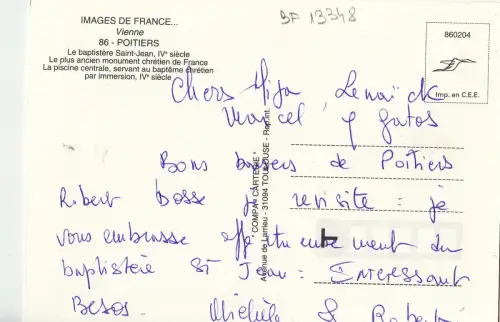 BF 13348
IMAGES DE FRANCE...
Vienne
86 - POITIERS
Le baptistère Saint-Jean, IVᵉ siècle
Le plus ancien monument chrétien de France
La piscine centrale, servant au baptême chrétien
par immersion, IVᵉ siècle
860204
Imp. en C.E.E.
Chers Lenaïck
Marcel y gatos
Bons baisers de Poitiers
Robert bosse je revisite : je
vous embrasse affectueusement du
baptistère St Jean : Interessant
Besos. Michèle & Robert
"COMPA CARTERIE"
Avenue de Larrieu - 31094 TOULOUSE - Rep. int.